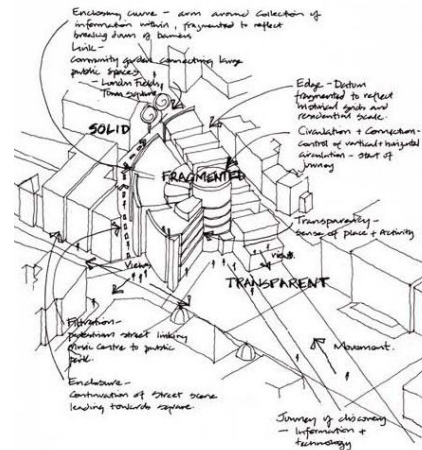 Enclosing curve - arm around collection of
information within, fragmented to reflect
breaking down of barriers
Link -
community garden connecting large
public spaces
- London Fields,
Town square
SOLID
Edge - Datum
fragmented to reflect
historical grids and
residential scale.
Circulation + Connection -
control of vertical + horizontal
circulation - start of
journey
FRAGMENTED
Transparency -
sense of place + Activity
views
Views
TRANSPARENT
Filtration -
pedestrian street linking
Music Centre to public
Movement.
Enclosure -
Continuation of street scene
leading towards square
Journey of discovery
- Information +
technology